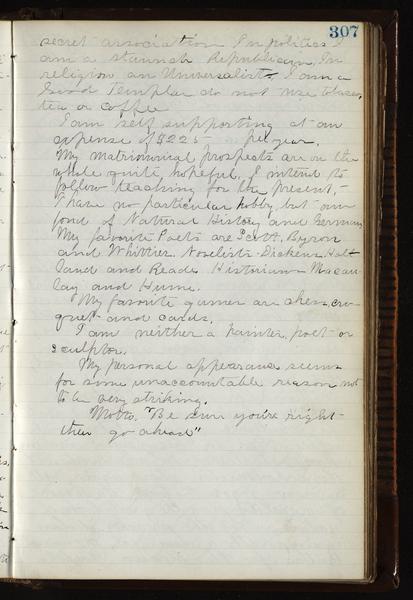 307
secret association. In politics I
am a staunch Republican, In
religion an Universalist. I am a
Good Templar do not use tobacco,
tea or coffee
I am self supporting at an
expense of $225 - per year.
My matrimonial prospects are on the
whole quite hopeful. I intend to
follow teaching for the present,-
I have no particular hobby but am
fond of Natural History and German
My favorite Poets are Scott, Byron
and Whittier. Novelists Dickens, Hol-
land and Reade Historians Macau-
lay and Hume.
My favorite games are chess, cro-
quet and cards.
I am neither a painter, poet or
sculptor.
My personal appearance seems
for some unaccountable reason not
to be very striking.
Motto. "Be sure you're right-
then go ahead"